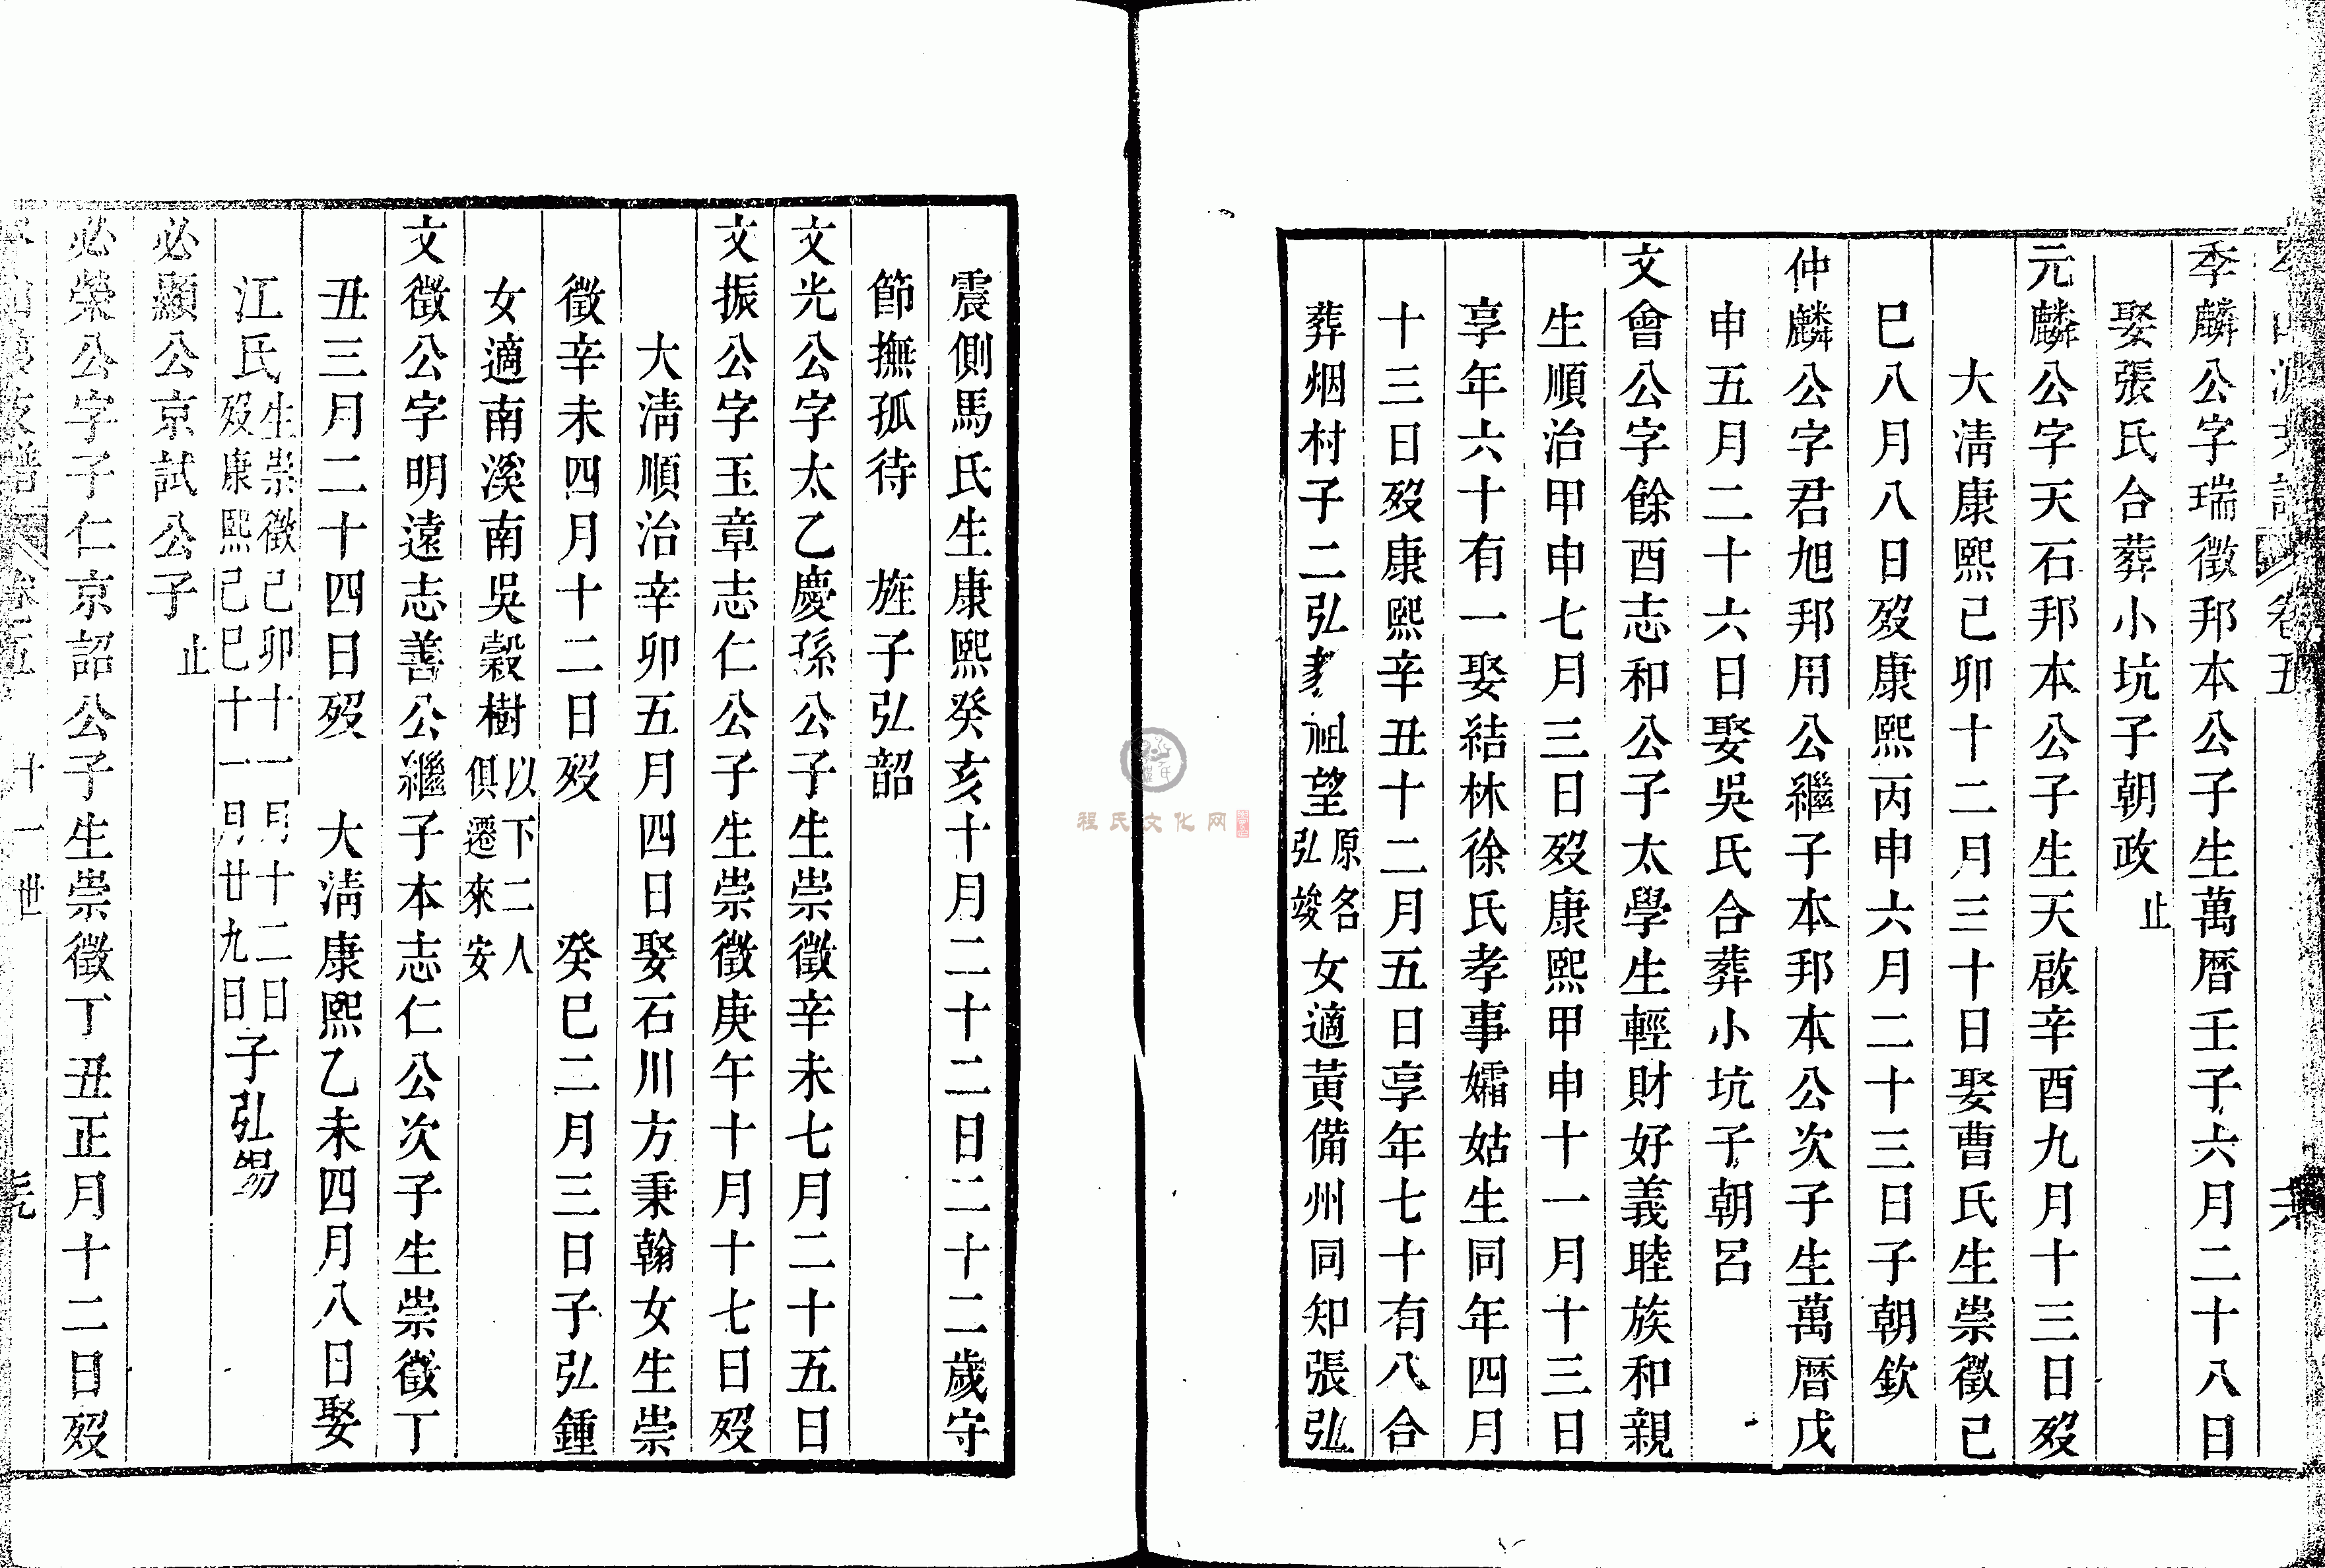 季麟公字瑞徵邦本公子生萬曆壬子六月二十八日
娶張氏合葬小坑子朝政止
元麟公字天石邦本公子生天啟辛酉九月十三日歿
大清康熙己卯十二月三十日娶曹氏生崇徵己
巳八月八日歿康熙丙申六月二十三日子朝欽
仲麟公字君旭邦用公繼子本邦本公次子生萬曆戊
申五月二十六日娶吳氏合葬小坑子朝呂
文會公字餘酉志和公子太學生輕財好義睦族和親
生順治甲申七月三日歿康熙甲申十一月十三日
享年六十有一娶結林徐氏孝事孀姑生同年四月
十三日歿康熙辛丑十二月五日享年七十有八合
葬烟村子二弘 祖望原名弘竣女適黃備州同知張弘
震側馬氏生康熙癸亥十月二十二日二十二歲守
節撫孤待 旌子弘韶
文光公字太乙慶孫公子生崇徵辛未七月二十五日
文振公字玉章志仁公子生崇徵庚午十月十七日歿
大清順治辛卯五月四日娶石川方秉翰女生崇
徵辛未四月十二日歿 癸巳二月三日子弘鍾
女適南溪南吳穀樹以下二人俱遷來安
文徵公字明遠志善公繼子本志仁公次子生崇徵丁
丑三月二十四日歿 大清康熙乙未四月八日娶
江氏生崇徵己卯十一月十二日歿康熙己巳十一月廿九日子弘錫
必顯公京試公子止
必榮公字子仁京詔公子生崇徵丁丑正月十二日歿
卷五 十一世
程氏文化网